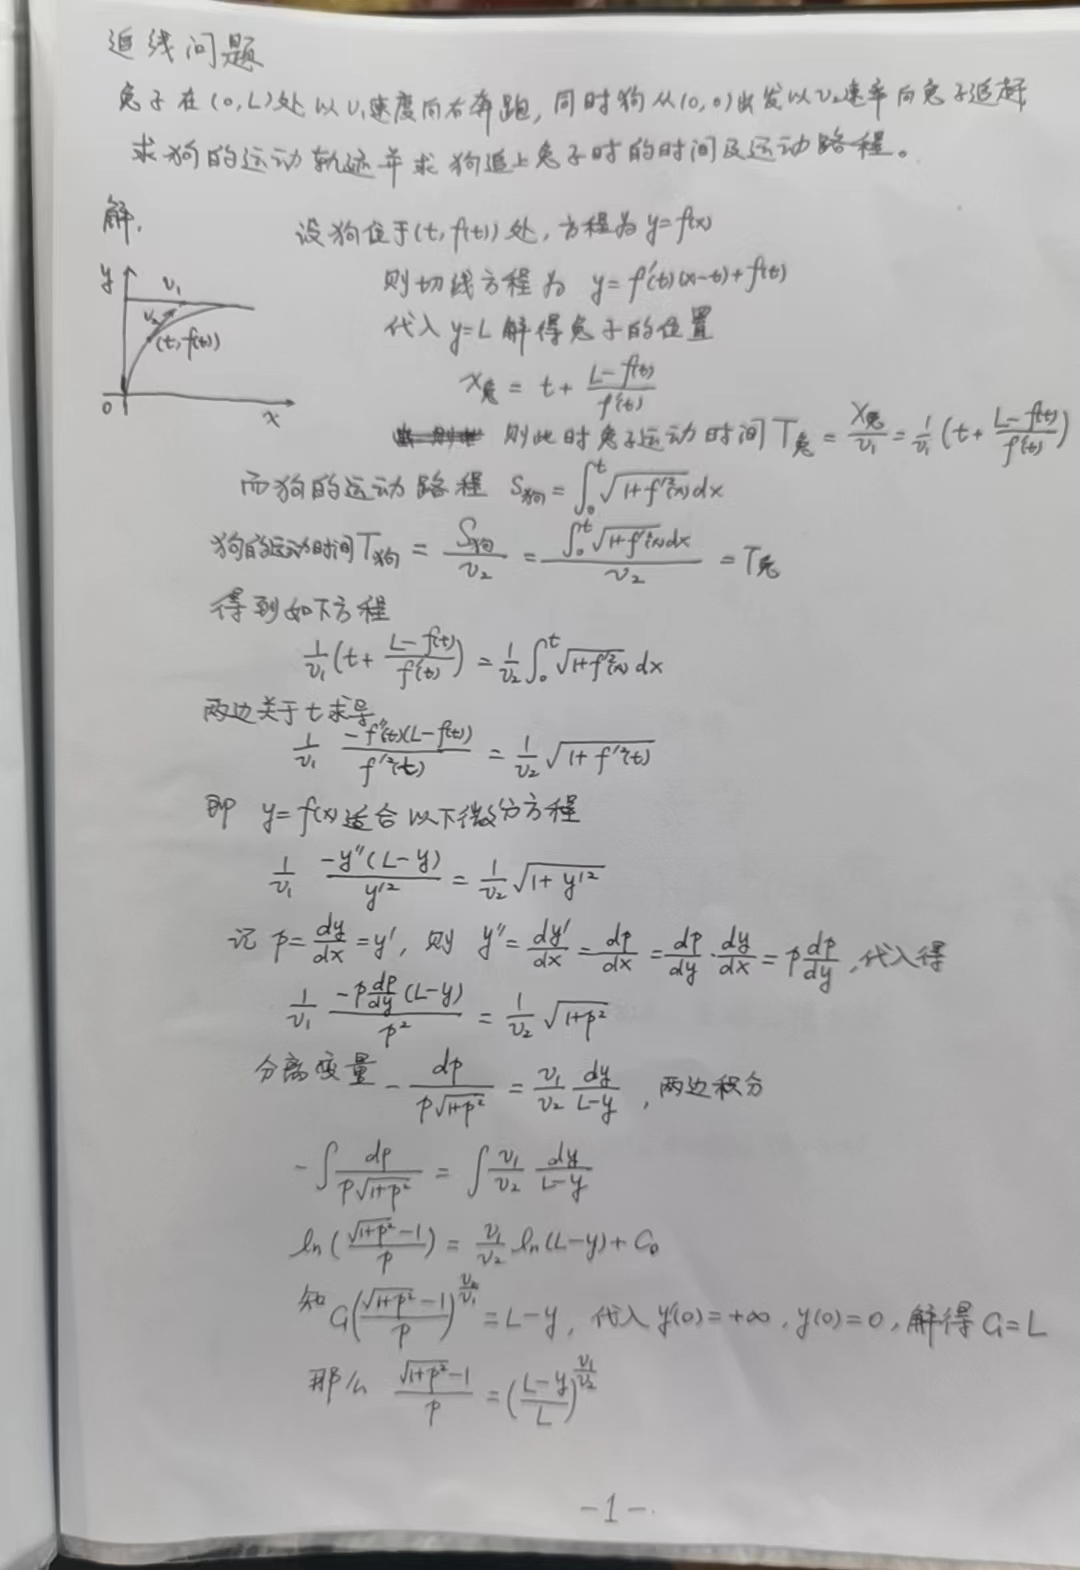 追线问题
兔子在(0,L)处以v₁速度向右奔跑,同时狗从(0,0)出发以v₂速率向兔子追赶
求狗的运动轨迹并求狗追上兔子时的时间及运动路程。
解.
设狗位于(t,f(t))处,方程为y=f(x)
则切线方程为 y=f'(t)(x-t)+f(t)
代入y=L解得兔子的位置
x兔 = t + (L-f(t))/f'(t)
则此时兔子运动时间T兔 = x兔/v₁ = 1/v₁ (t + (L-f(t))/f'(t))
y v₁ v₂ (t,f(t)) 0 x
而狗的运动路程 S狗 = ∫₀ᵗ √(1+f'²(x)) dx
狗的运动时间T狗 = S狗/v₂ = ∫₀ᵗ √(1+f'²(x)) dx / v₂ = T兔
得到如下方程
1/v₁ (t + (L-f(t))/f'(t)) = 1/v₂ ∫₀ᵗ √(1+f'²(x)) dx
两边关于t求导
1/v₁ · -f''(t)(L-f(t))/f'²(t) = 1/v₂ √(1+f'²(t))
即 y=f(x)适合以下微分方程
1/v₁ · -y''(L-y)/y'² = 1/v₂ √(1+y'²)
记 p=dy/dx=y', 则 y''=dy'/dx=dp/dx=dp/dy·dy/dx=p dp/dy,代入得
1/v₁ · -p dp/dy (L-y)/p² = 1/v₂ √(1+p²)
分离变量 -dp/(p√(1+p²)) = v₁/v₂ · dy/(L-y), 两边积分
-∫ dp/(p√(1+p²)) = ∫ v₁/v₂ · dy/(L-y)
ln((√(1+p²)-1)/p) = v₁/v₂ ln(L-y)+C₀
知 C₁((√(1+p²)-1)/p)^(v₂/v₁) = L-y, 代入y'(0)=+∞, y(0)=0, 解得C₁=L
那么 (√(1+p²)-1)/p = ((L-y)/L)^(v₁/v₂)
-1-